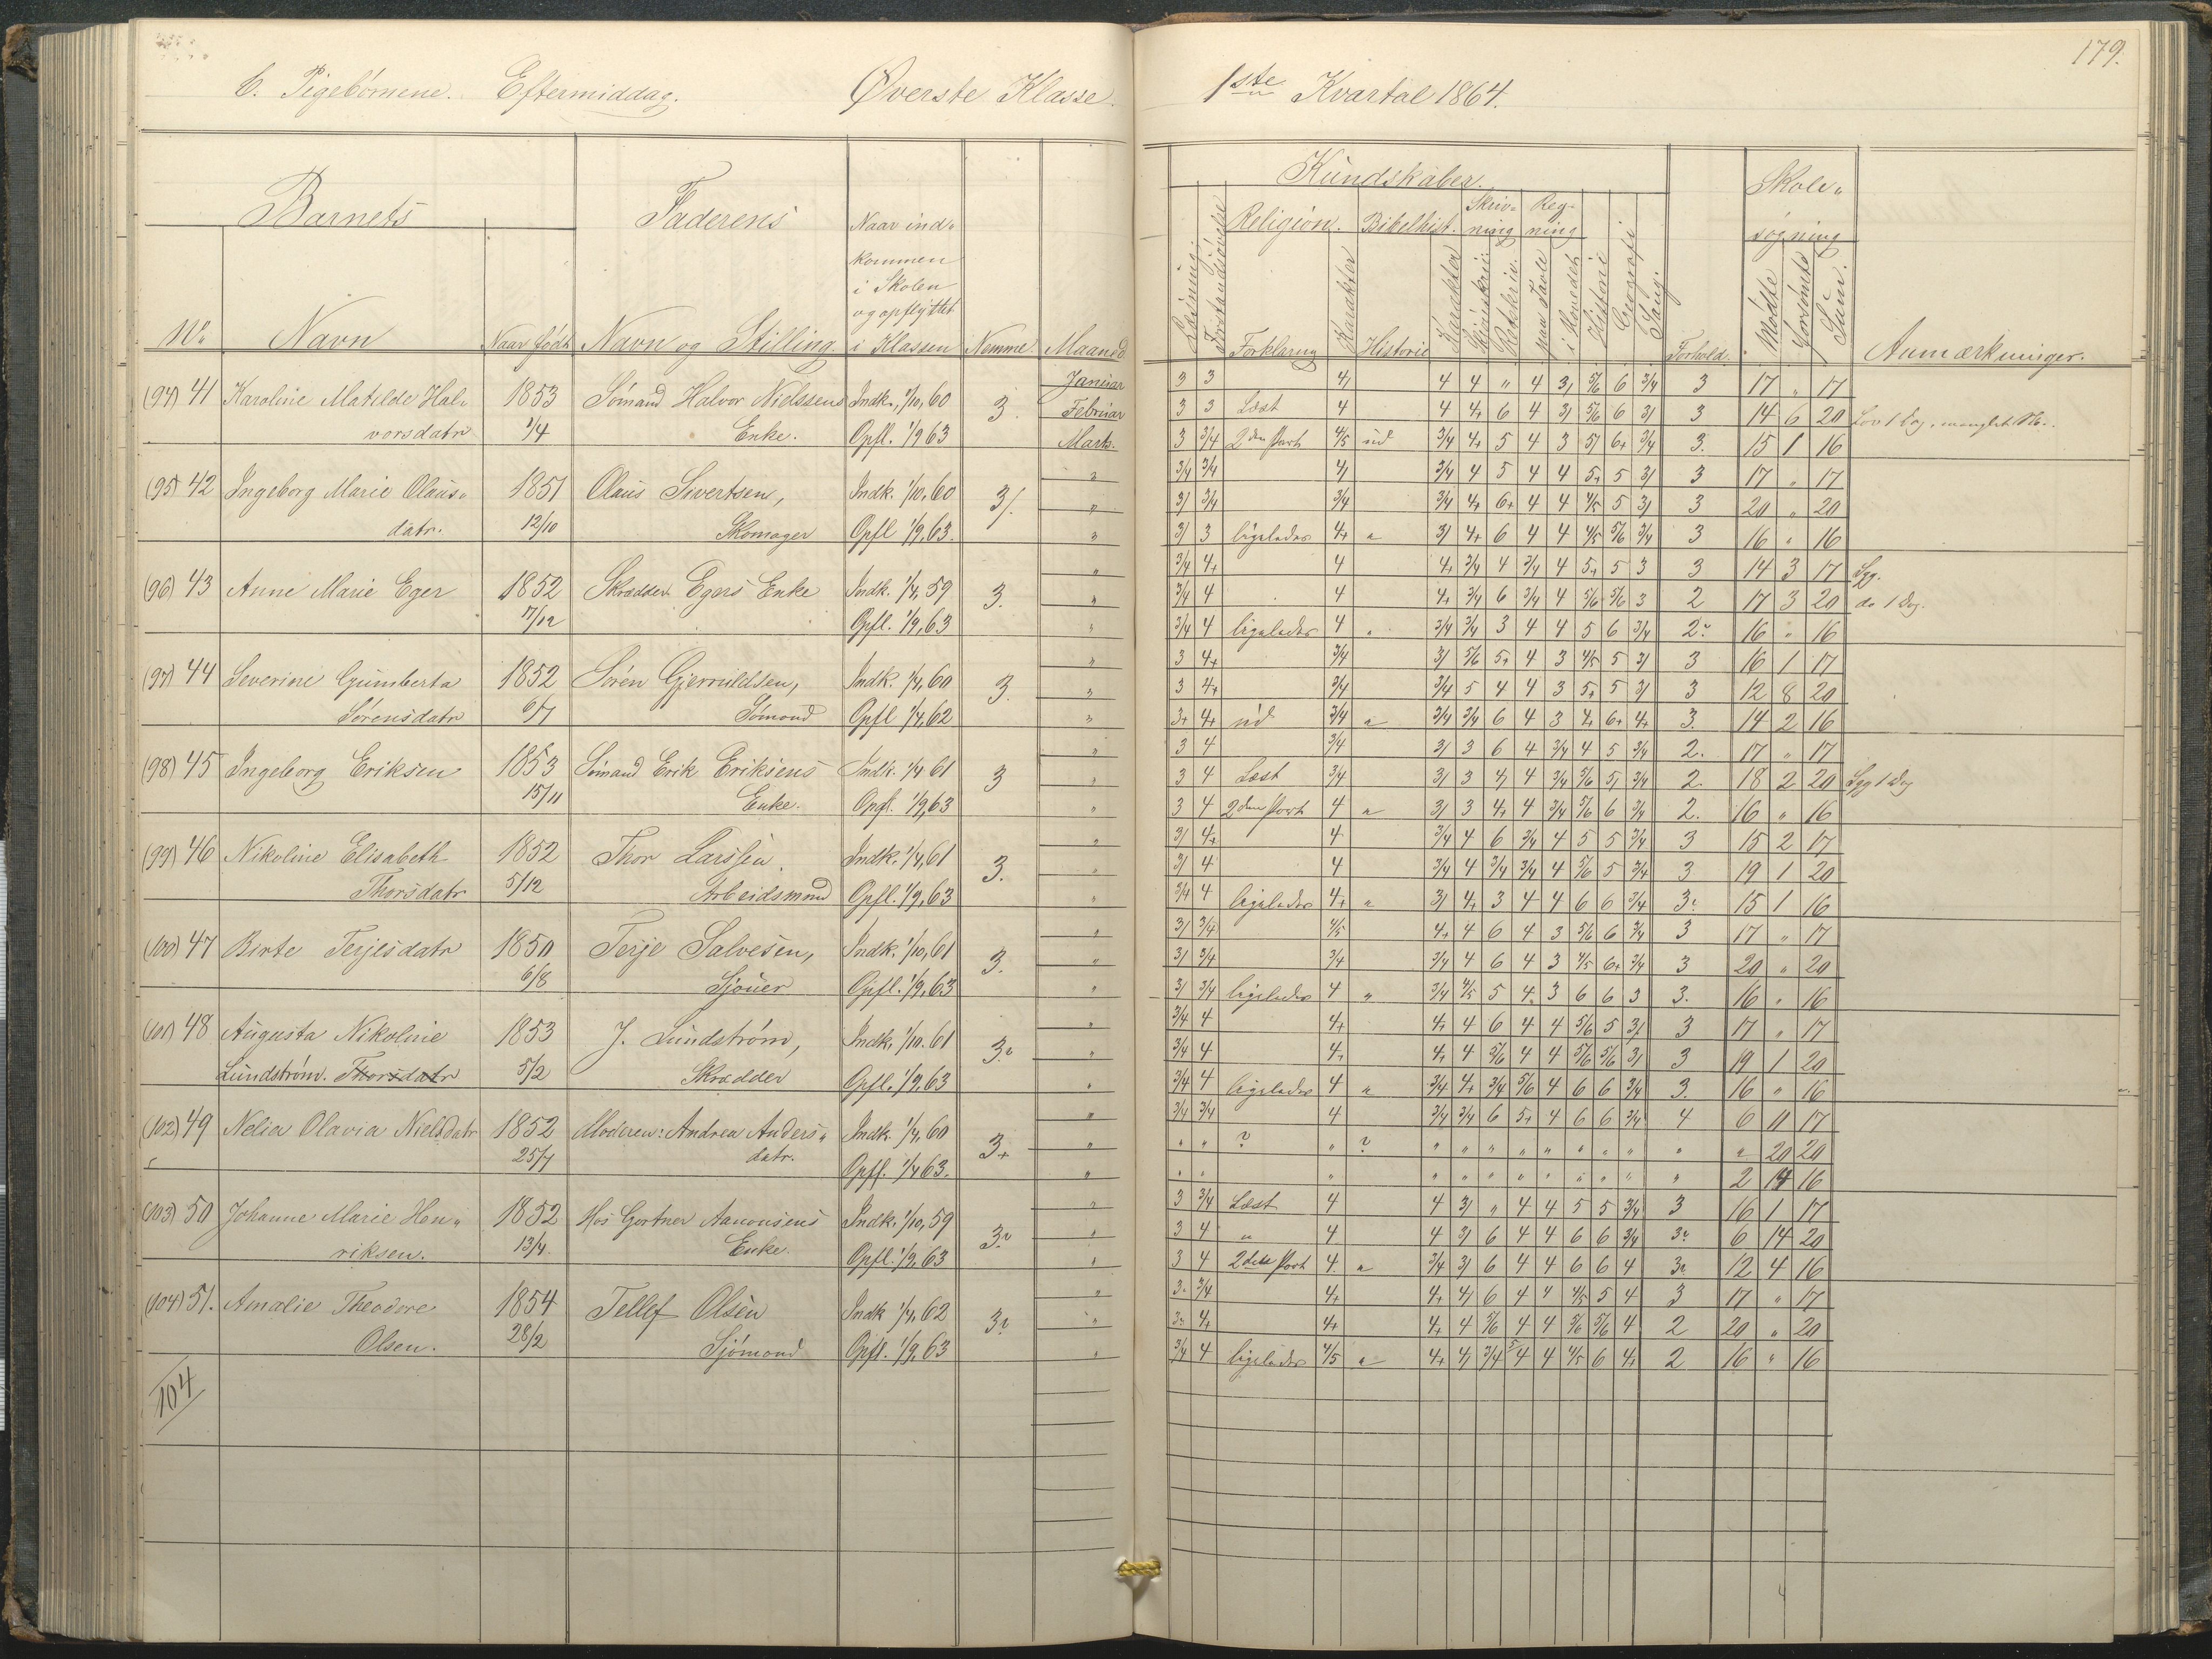 179.
C. Pigebørnene. Eftermiddag. Øverste Klasse. 1ste Kvartal 1864.
Barnets Faderens Naar ind- Kundskaber. Skole-
kommen Religion. Bibelhist. Skriv- Reg- søgning
i Skolen ning ning
og opflyttet
No Navn Naar født Navn og Stilling i Klassen Nemme. Maaned Læsning Forstandsøvelse Forklaring Karakter Historie Karakter Skjønskriv. Retskriv. paa Tavle i Hovedet Historie Geografi Sang Forhold. Mødte Forsømte Sum. Anmærkninger.
(94) 41 Karoline Matilde Hal- 1853 Sømand Halvor Nielssens Indk. 1/10, 60 3. Januar 3 3 4/ 4 4 " 4 3/ 5/6 6 3/4 3 17 " 17
vorsdatr 1/4 Enke. Opfl. 1/9 63 Februar 3 3 Læst 4 4 4+ 6 4 3/ 5/6 6 3/ 3 14 6 20
Marts. 3 3/4 2den Part 4/5 ud 3/4 4+ 5 4 3 5/ 6+ 3/4 3. 15 1 16
(95) 42 Ingeborg Marie Olaus- 1851 Olaus Sivertsen, Indk. 1/10, 60 3/. " 3/4 3/4 4/ 3/4 4 5 4 4 5+ 5 3/ 3 17 " 17
datr. 12/10 Skomager Opfl 1/9, 63. " 3/ 3/4 3/4 3/4 4+ 6+ 4 4 4/5 5 3/ 3 20 " 20
" 3/ 3 ligeledes 4+ " 3/ 4+ 6 4 4 4/5 5/6 3/4 3 16 " 16
(96) 43 Anne Marie Eger 1852 Skrædder Egers Enke Indk. 1/4, 59 3. " 3/4 4+ 4 4+ 3/4 4 3/4 4 5+ 5 3 3 14 3 17 Syg.
17/12 Opfl. 1/9, 63 " 3/4 4 4 4+ 3/4 6 3/4 4 5/6 5/6 3 2 17 3 20 do 1 Dag.
" 3/4 4 ligeledes 4 " 3/4 3/4 3 4 4 5 6 3/4 2? 16 " 16
(97) 44 Severine Gumberta 1852 Søren Gjeruldsen, Indk. 1/4, 60 3. " 3 4+ 3/4 3/ 5/6 5+ 4 3 4/5 5 3/ 3 16 1 17
Sørensdatr 6/7 Sømand Opfl 1/4, 62 " 3 4+ 3/4 3/4 5 4 4 3 5+ 5 3/ 3 12 8 20
" 3+ 4+ ud 3/4 " 3/4 3/4 6 4 3 4+ 6+ 4+ 3. 14 2 16
(98) 45 Ingeborg Eriksen 1853 Sømand Erik Eriksens Indk. 1/4 61 3 " 3 4 3/4 3/ 3 6 4 3/4 4 5 3/4 2. 17 " 17
15/11 Enke. Opfl. 1/9, 63 " 3 4 Læst 3/4 3/ 3 4/ 4 3/4 5/6 5/ 3/4 2. 18 2 20 Syg 1 Dag
" 3 4 2den Part 4 " 3/ 3 4+ 4 3/4 5/6 6 3/4 2. 16 " 16
(99) 46 Nikoline Elisabeth 1852 Thor Larssen Indk. 1/4, 61 3. " 3/ 4+ 4 3/4 4 6 3/4 4 5 5 3/4 3 15 2 17
Thorsdatr 5/12 Arbeidsmand Opfl. 1/9, 63 " 3/ 4 4 3/4 4 3/4 3/4 4 5/6 5 3/4 3 19 1 20
" 3/4 4 ligeledes 4+ " 3/ 4+ 3 4 4 6 6 3/4 3? 15 1 16
(100) 47 Birte Terjesdatr 1850 Terje Salvesen, Indk. 1/10, 61 3. " 3/ 3/4 4/5 4+ 4 6 4 3 5/6 6 3/4 3 17 " 17
6/8 Sjouer Opfl. 1/9, 63 " 3/ 3/4 3/4 3/4 4 6 4 3 4/5 6+ 3/4 3 20 " 20
" 3/ 3/4 ligeledes 4 " 3/4 4/5 5 4. 3 6 6 3 3. 16 " 16
(101) 48 Augusta Nikoline 1853 J. Lundstrøm, Indk. 1/10. 61 3? " 3/4 4 4+ 4+ 4 6 4 4 5/6 5 3/ 3 17 " 17
Lundstrøm. Thorsdatr 5/2 Skrædder Opfl. 1/9, 63 " 3/4 4 4+ 4+ 4 5/6 4 4 5/6 5/6 3/ 3 19 1 20
" 3/4 4 ligeledes 4 " 3/4 4+ 3/4 5/6 4 6 6 3/4 3. 16 " 16
(102) 49 Nelia Olavia Nielsdatr 1852 Moderen: Andrea Anders- Indk. 1/4, 60 3+ " 3/4 3/4 4 3/4 3/4 6 5+ 4 6 6 3/4 4 6 11 17
25/7 datr. Opfl. 1/4 63. " " " ? " ? " " " " " " " " " " 20 20
" " " " " " " " " " " " " 2 14 16
(103) 50 Johanne Marie Hen- 1852 Hos Gartner Aanonsens Indk. 1/10, 59 3? " 3 3/4 Læst 4 4 3/ " 4 4 5 5 3/4 3 16 1 17
riksen. 13/4. Enke. Opfl. 1/9, 63 " 3 4 " 4 4 3/ 6 4 4 6 6 3/4 3? 6 14 20
" 3 4 2den Part 4 " 3/4 3/ 6 4 4 6 6 4 3? 12 4 16
(104) 51. Amalie Theodore 1854 Tellef Olsen Indk 1/4, 62 3? " 3. 3/4 4+ 4+ 4/ 6 4 4 4/5 5 4 3 17 " 17
Olsen. 28/2 Sjømand Opfl. 1/9, 63 " 3? 4+ 4+ 4+ 4 5/6 4 4 5/6 5/6 4 2 20 " 20
" 3/4 4 ligeledes 4/5 " 4+ 4/ 3/4 4 4 4/5 6 4+ 2 16 " 16
104